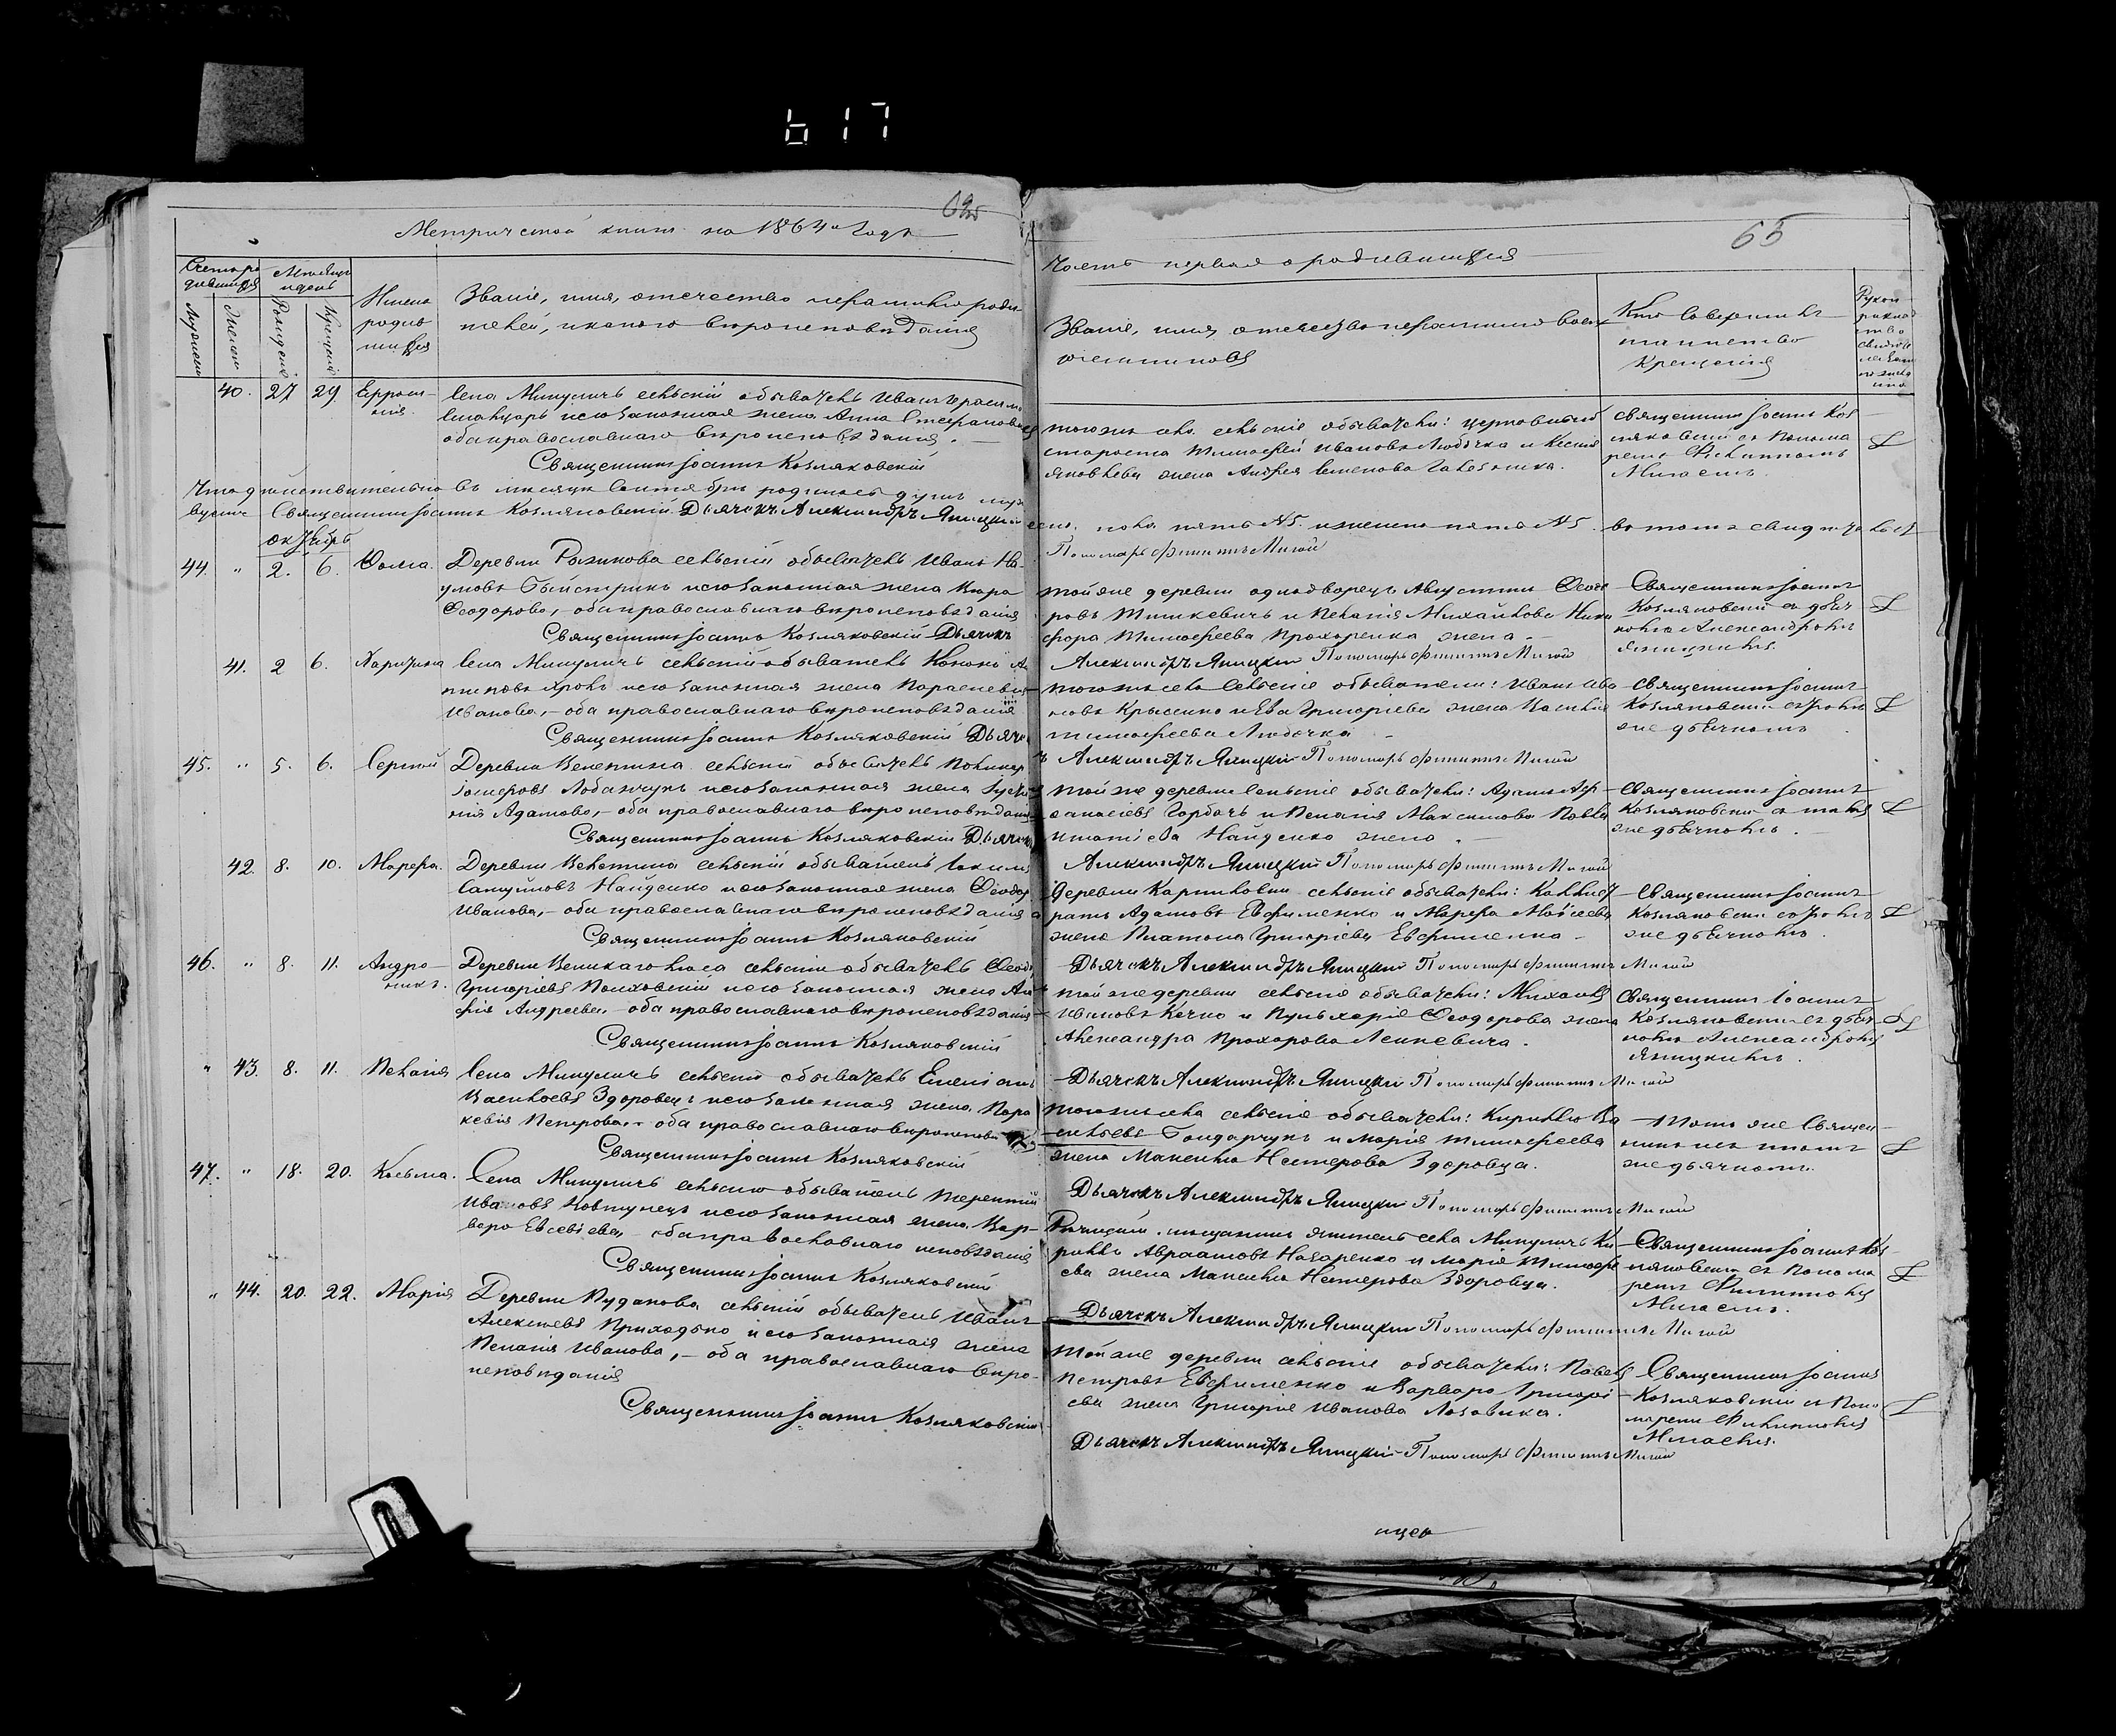 617
Метрической книги на 1864й Годъ
65
Часть первая о родившихся
Счетъ ро
дившихся
Мѣсяцъ
и день
Мужеска
Женска
Рожденія
Крещенія
Имена
родив
шихся
Званіе, имя, отечество и фамилія роди
телей, и какого вѣроисповѣданія
Званіе, имя отечество и фамилія воспр
Кто совершилъ
таинство
крещенія
40. 27 29 Еффоси
нія.
Села Микуличъ сельскій обыватель Иванъ Гераси
и его законная жена Анна Стефанова
оба православнаго вѣроисповѣданія. —
Священникъ Іоаннъ Козляковскій
того же села сельскіе обыватели: церковный
староста Тимофей Ивановъ Любочка и
Яковлева жена Андрея Семенова
священникъ Іоаннъ Коз
ляковскій съ Понома
ремъ Филиппомъ
Мигаемъ.
Что дѣйствительно въ мѣсяцѣ Сентябрѣ родилось душъ муж
Священникъ Іоаннъ Козляковскій Дьячекъ Александръ Ялицкій
пола пять №5. и женска пять №5. въ томъ свидѣтельст
Пономарь Филиппъ Мигай
октябрь
44. " 2. 6. Фома.
Деревни Рожинова сельскій обыватель Иванъ На-
умовъ и его законная жена Кира
Феодорова, – оба православнаго вѣроисповѣданія
Священникъ Іоаннъ Козляковскій Дьячекъ
той же деревни однодворецъ Августинъ Феодо
ровъ Тишкевичъ и Пелагія Михайлова Ники
фора Тимофеева Прохоренка жена. –
Александръ Ялицкій Пономарь Филиппъ Мигай
Священникъ Іоаннъ
Козляковскій съ дьяч
комъ Александромъ
Ялицкимъ.
41. 2 6. Харитина
Села Микуличъ сельскій обыватель Кононъ Ан
типовъ и его законная жена Параскевія
Иванова, – оба православнаго вѣроисповѣданія
Священникъ Іоаннъ Козляковскій Дьяче
того же села сельскіе обыватели: Иванъ Ива
новъ Крысенко и Ева Григоріева жена Василія
Тимофеева Любочка –
священникъ Іоаннъ
Козляковскій съ тѣмъ
же дьячкомъ
45. " 5. 6. Сергій
Деревни Велетина сельскій обыватель Поликар
и его законная жена Іусти
нія Адамова, – оба православнаго вѣроисповѣданія
Священникъ Іоаннъ Козляковскій Дьячекъ
ъ Александръ Ялицкій Пономарь Филиппъ Мигай
той же деревни сельскіе обыватели: Адамъ Аф
анасіевъ Горбачъ и Пелагія Максимова Павла
Игнатіева Найденко жена. –
Священникъ Іоаннъ
Козляковскій съ тѣмъ
же дьячкомъ. –
42. 8. 10. Марфа.
Деревни Велетина сельскій обыватель Іакимъ
Самуиловъ Найденко и его законная жена Феодор
Иванова, – оба православнаго вѣроисповѣданія
Священникъ Іоаннъ Козляковскій
Александръ Ялицкій Пономарь Филиппъ Мигай
Деревни Карпиловки сельскіе обыватели: Каллист
ратъ Адамовъ Евфименко и Марфа Моѵсеева
жена Платона Григоріева Евфименка –
Священникъ Іоаннъ
Козляковскій съ тѣмъ
же дьячкомъ.
46. " 8. 11. Андро
никъ.
Деревни Великаголѣса сельскій обыватель Феод
Григоріевъ и его законная жена Ан
Андреева, – оба православнаго вѣроисповѣданія
Священникъ Іоаннъ Козляковскій
Дьячекъ Александръ Ялицкій Пономарь Филиппъ Мигай
той же деревни сельскіе обыватели: Михаилъ
Ивановъ Кечко и Пульхерія Феодорова жена
Александра Прохорова
Священникъ Іоаннъ
Козляковскій съ дьяч
комъ Александромъ
Ялицкимъ.
" 43. 8. 11. Пелагія
Села Микуличъ сельскій обыватель Емеліанъ
Васильевъ Здоровецъ и его законная жена Пара
скевія Петрова, – оба православнаго вѣроисповѣ
Священникъ Іоаннъ Козляковскій
Дьячекъ Александръ Ялицкій Пономарь Филиппъ Мигай
того же села сельскіе обыватели: Кириллъ Ва
сильевъ Гондарчукъ и Марія Тимофеева
жена Максима Нестерова Здоровца.
— Тотъ же Священ
никъ съ тѣмъ
же дьячкомъ.
47. " 18. 20. Косьма.
Села Микуличъ сельскій обыватель Терентій
Ивановъ Ковтунецъ и его законная жена Вар-
вара Евсевіева, – оба православнаго исповѣданія
Священникъ Іоаннъ Козляковскій
Дьячекъ Александръ Ялицкій Пономарь Филиппъ Мигай
Рѣчицкій мѣщанинъ житель села Микуличъ Ки
риллъ Авраамовъ Назаренко и Марія Тимофе
ева жена Максима Нестерова Здоровца.
Священникъ Іоаннъ Коз-
ляковскій съ Понома
ремъ Филиппомъ
Мигаемъ.
" 44. 20. 22. Марія
Деревни Рудакова сельскій обыватель Иванъ
Алексѣевъ Приходько и его законная жена
Пелагія Иванова, – оба православнаго вѣро-
исповѣданія
Священникъ Іоаннъ Козляковскій
Дьячекъ Александръ Ялицкій Пономарь Филиппъ Мигай
Той же деревни сельскіе обыватели: Павелъ
Петровъ Евфименко и Варвара Григорі
ева жена Григорія Иванова Лозовика.
Священникъ Іоаннъ
Козляковскій съ Поно
маремъ Филиппомъ
Мигаемъ.
Дьячекъ Александръ Ялицкій Пономарь Филиппъ Мигай